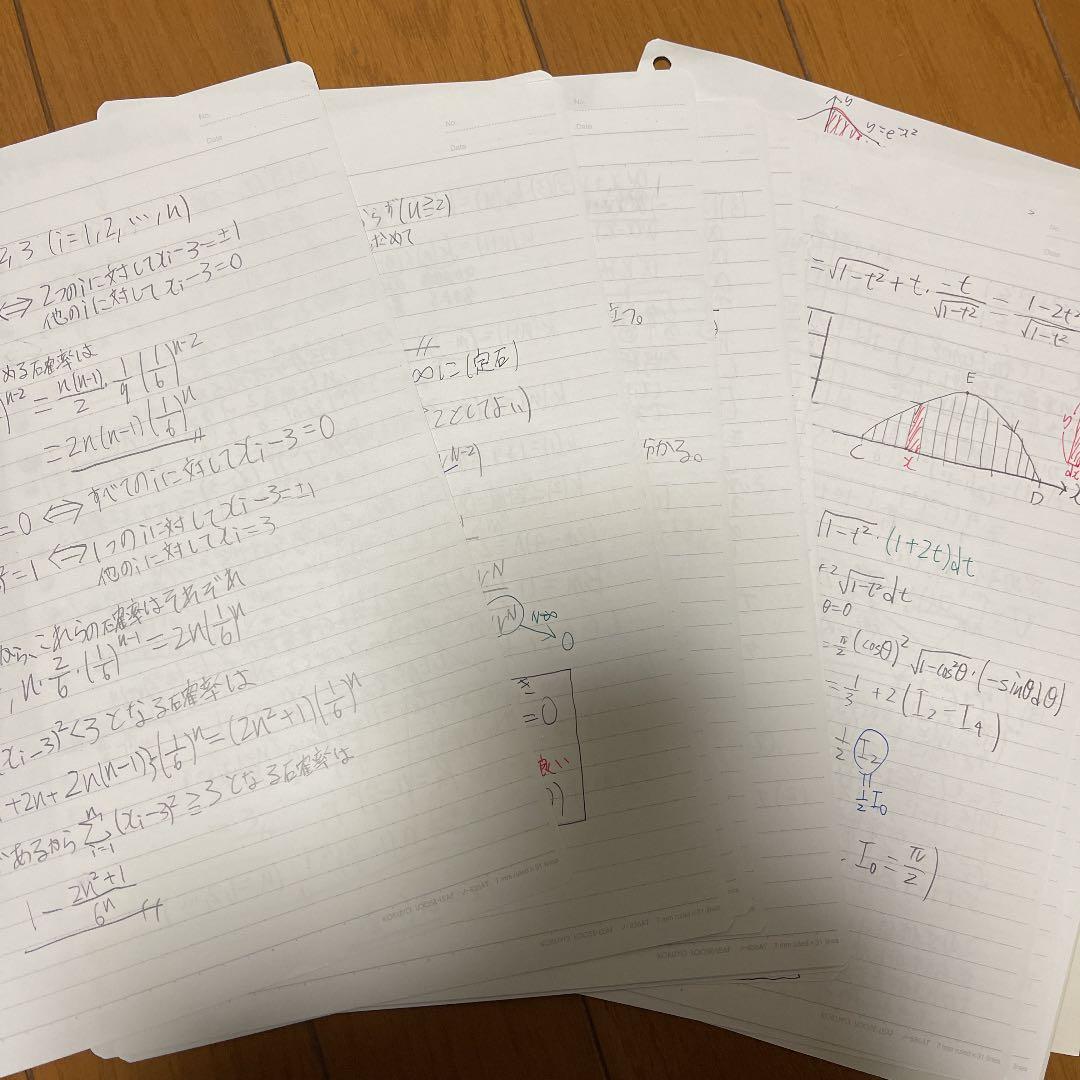 2,3 (i=1,2,…,n)
⇔ 2つのiに対してxi-3=±1
他のiに対してxi-3=0
める確率は
)^{n-2} = \frac{n(n-1)}{2}・\frac{1}{9}(\frac{1}{6})^{n-2}
= 2n(n-1)(\frac{1}{6})^n
=0 ⇔ すべてのiに対してxi-3=0
=1 ⇔ 1つのiに対してxi-3=±1
他のiに対してxi=3
から、これらの確率はそれぞれ
, n・\frac{2}{6}・(\frac{1}{6})^{n-1} = 2n(\frac{1}{6})^n
(xi-3)^2<3となる確率は
+2n+2n(n-1)}(\frac{1}{6})^n = (2n^2+1)(\frac{1}{6})^n
であるから \sum_{i=1}^{n}(xi-3)^2≧3となる確率は
1-\frac{2n^2+1}{6^n}
No.
Date
(n≧2)
ためて
∞に(定石)
としてよい)
N-2)
rN
rN N→∞
0
=0
良い
No.
Date
立つ。
分かる。
y
y=e^{-x^2}
No.
Date
=\sqrt{1-t^2}+t・\frac{-t}{\sqrt{1-t^2}}=\frac{1-2t^2}{\sqrt{1-t^2}}
E
C
x
D
y
dx
\sqrt{1-t^2}・(1+2t)dt
2\sqrt{1-t^2}dt
θ=0
=\frac{π}{2}(cosθ)^2\sqrt{1-cos^2θ}・(-sinθdθ)
=\frac{1}{3}+2(I_2-I_4)
\frac{1}{2}I_2
=
\frac{1}{2}I_0
I_0=\frac{π}{2})